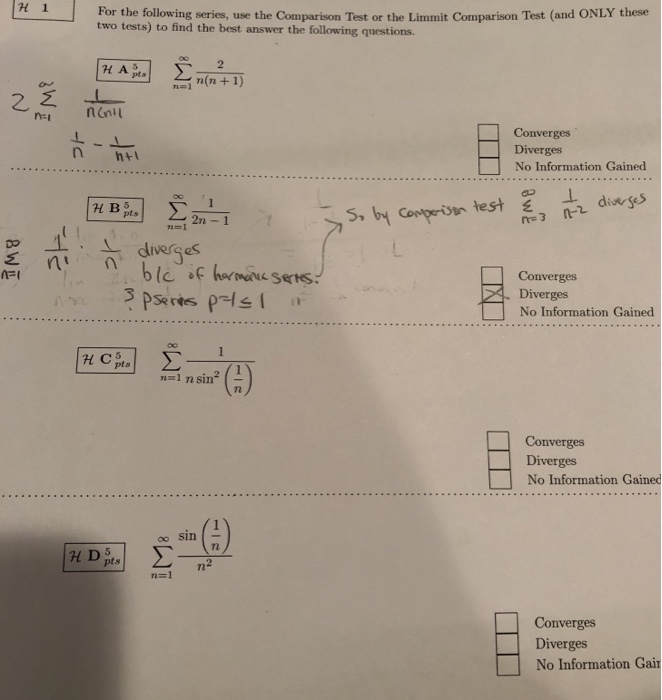 H 1
For the following series, use the Comparison Test or the Limmit Comparison Test (and ONLY these
two tests) to find the best answer the following questions.
H A 5 pts
∞ Σ n=1 2 / n(n + 1)
2 ∞ Σ n=1 1 / n(n+1
1/n - 1/n+1
Converges
Diverges
No Information Gained
H B 5 pts
∞ Σ n=1 1 / 2n − 1
So by comparison test ∞ Σ n=3 1/n-2 diverges
∞ Σ n=1 1/n 1/n diverges
b/c of harmonic series.
3 pseries p=1≤1
Converges
Diverges
No Information Gained
H C 5 pts
∞ Σ n=1 1 / n sin² (1/n)
Converges
Diverges
No Information Gained
H D 5 pts
∞ Σ n=1 sin (1/n) / n²
Converges
Diverges
No Information Gain